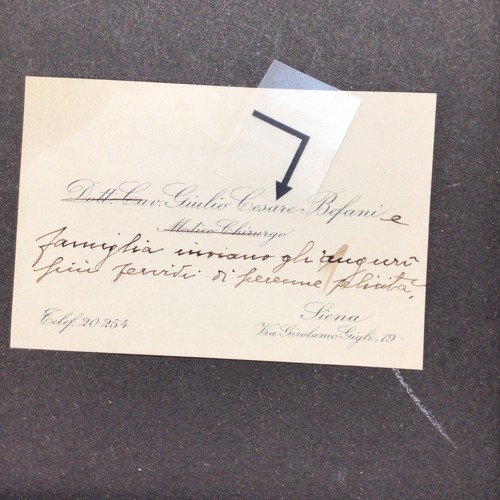 Dott. Cav. Giulio Cesare Befani e
Medico Chirurgo
famiglia inviano gli auguri
più fervidi di perenne felicità,
Siena
Telef. 20-254
Via Girolamo Gigli, 19